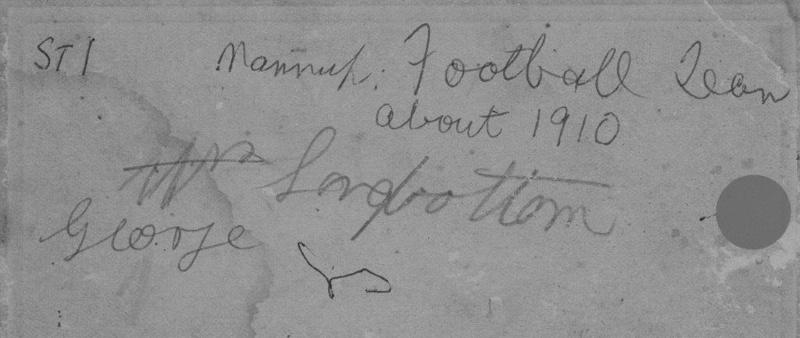 ST 1 Nannup. Football Team
about 1910
Mrs Longbottom
George